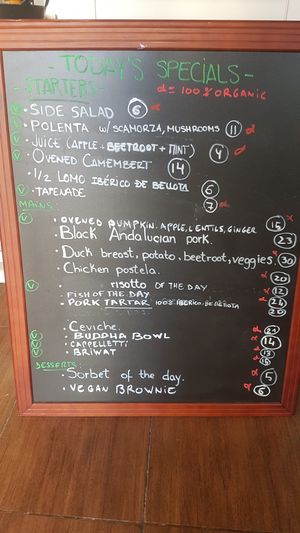 - TODAY'S SPECIALS -
- STARTERS -
d = 100% ORGANIC
V • SIDE SALAD 6 d
V • POLENTA w/ SCAMORZA, MUSHROOMS 11 d
V • JUICE (APPLE - BEETROOT + MINT) 4 d
V • OVENED CAMEMBERT 14
• 1/2 LOMO IBÉRICO DE BELLOTA 6
V • TAPENADE 7 d
MAINS:
V • OVENED PUMPKIN, APPLE, LENTILS, GINGER 15
• Black Andalucian pork. 23
• Duck breast, potato, beetroot, veggies. 30
• Chicken postela. 20
V • risotto OF THE DAY 12
• FISH OF THE DAY 24
• PORK TARTAR 100% IBERICO DE BELLOTA 20
• Ceviche.
V • BUDDHA BOWL 14
V • CAPPELLETTI
V • BRIWAT
DESSERTS:
• Sorbet of the day. 5
• VEGAN BROWNIE 6